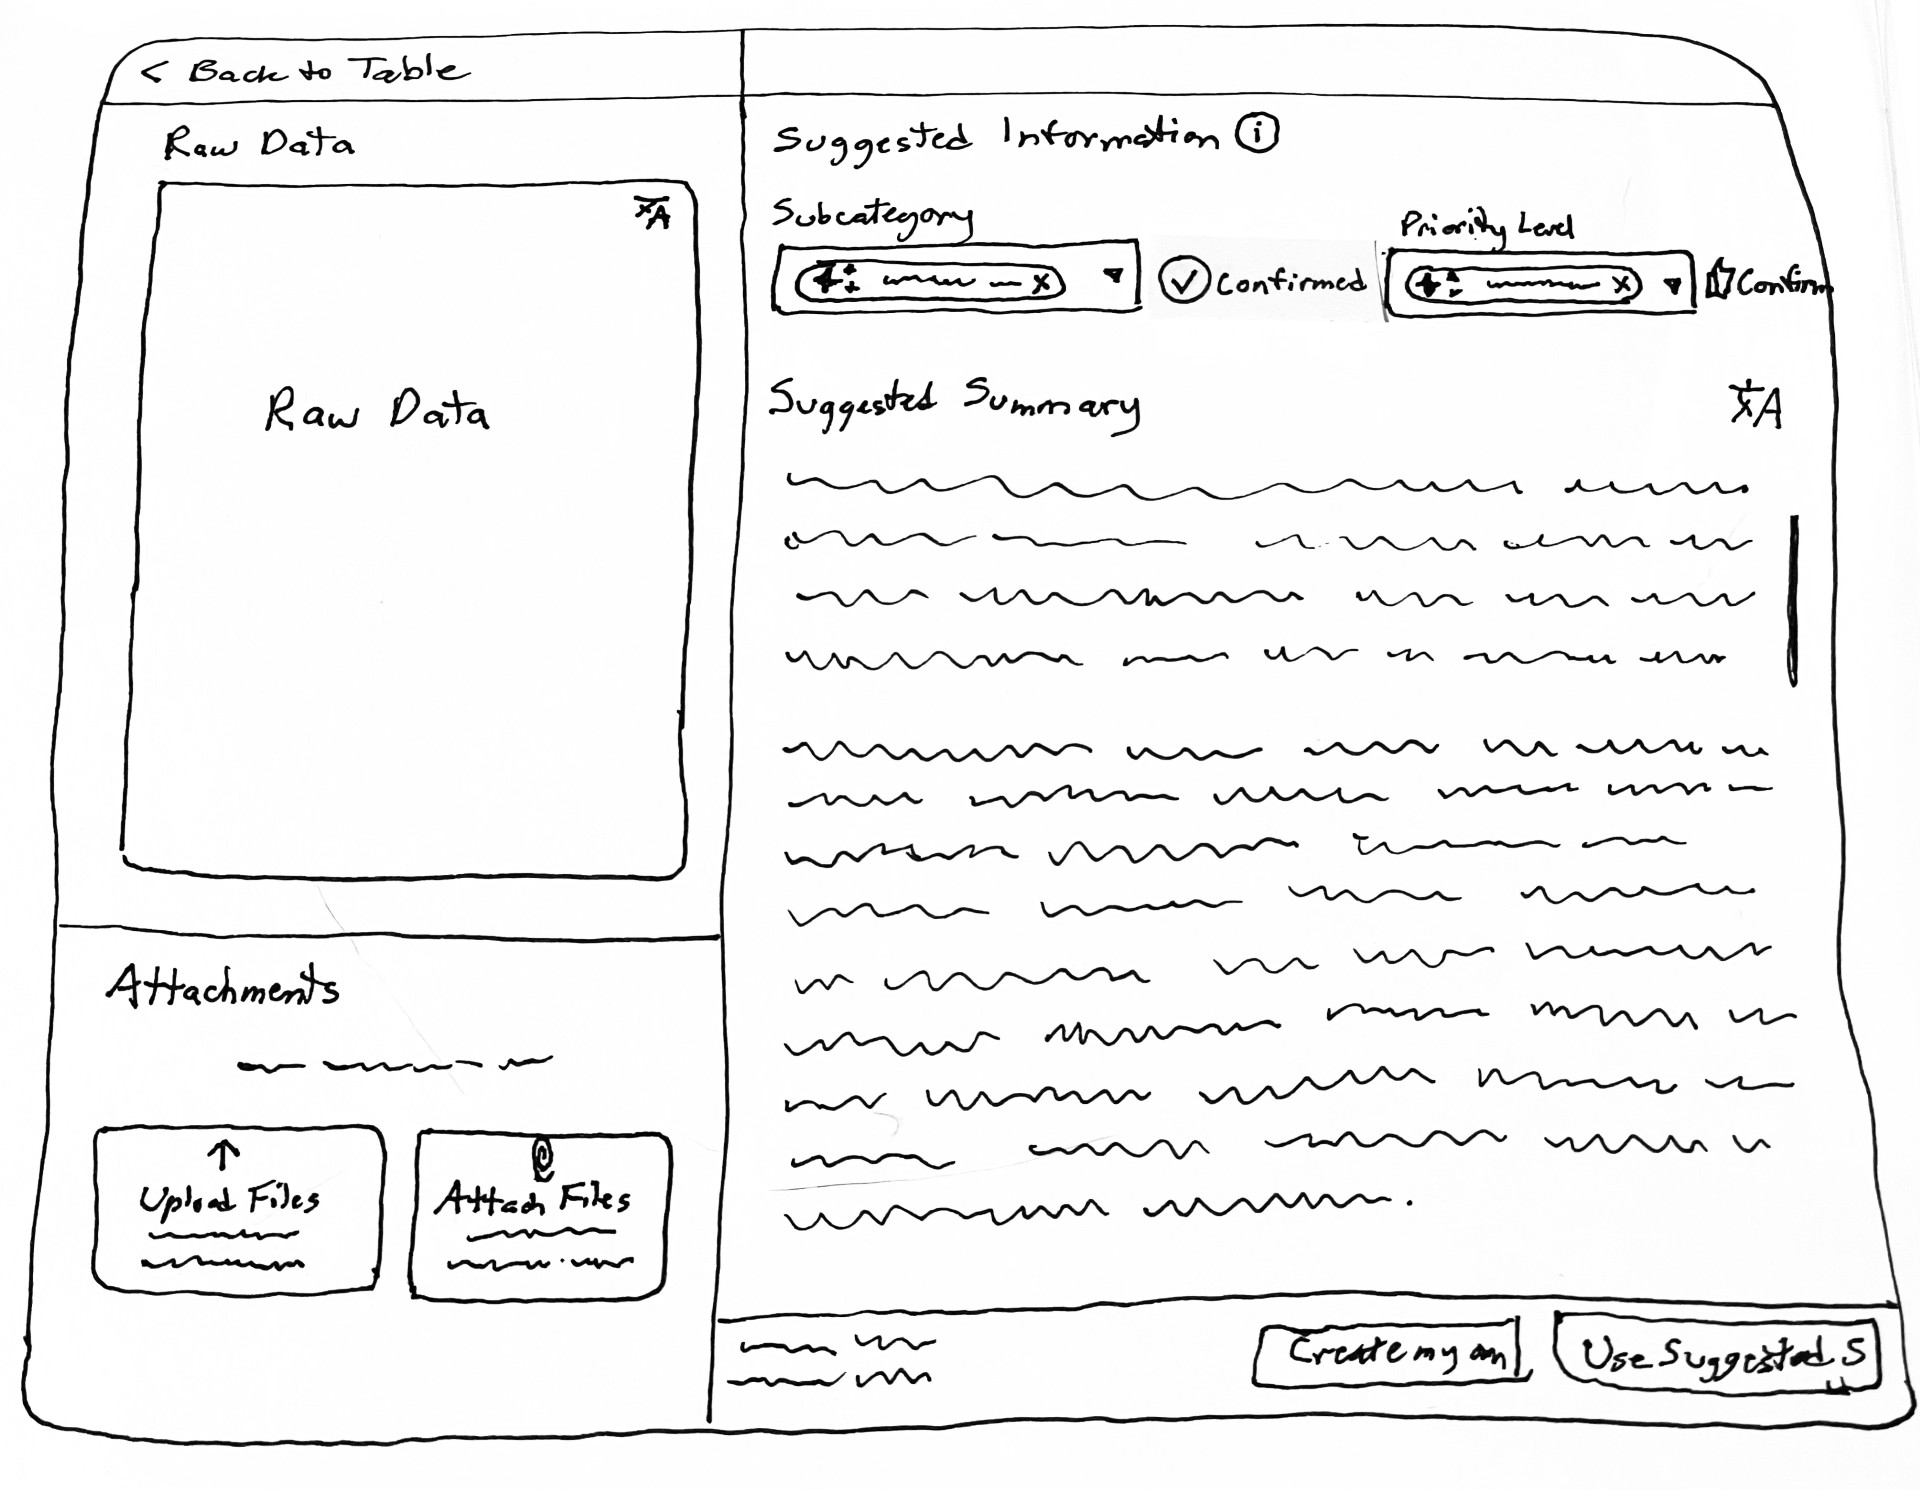 < Back to Table
Raw Data
Raw Data
Attachments
Upload Files
Attach Files
Suggested Information i
Subcategory
x
Confirmed
Priority Level
x
Confirm
Suggested Summary
Create my own
Use Suggested S